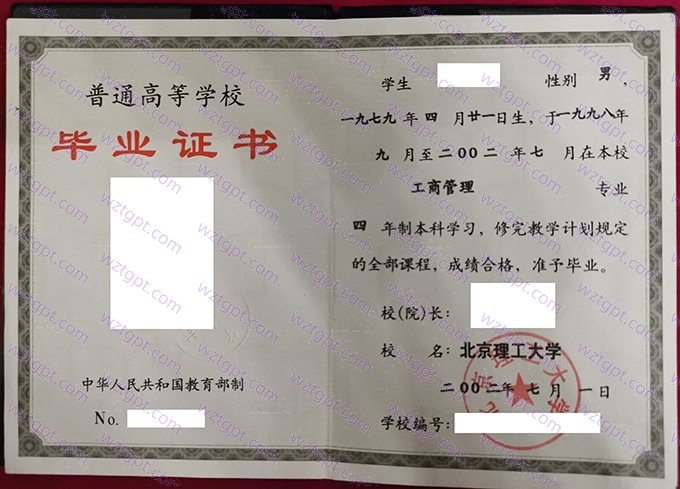 普通高等学校
毕业证书
中华人民共和国教育部制
No.
学生 性别 男,
一九七九年 四 月 廿一日生, 于一九九八年
九 月至 二00二 年 七 月在本校
工商管理 专业
四 年制本科学习, 修完教学计划规定
的全部课程, 成绩合格, 准予毕业。
校(院)长:
校 名: 北京理工大学
二00二年 七 月 一 日
学校编号:
北京理工大学
wztgpt.com